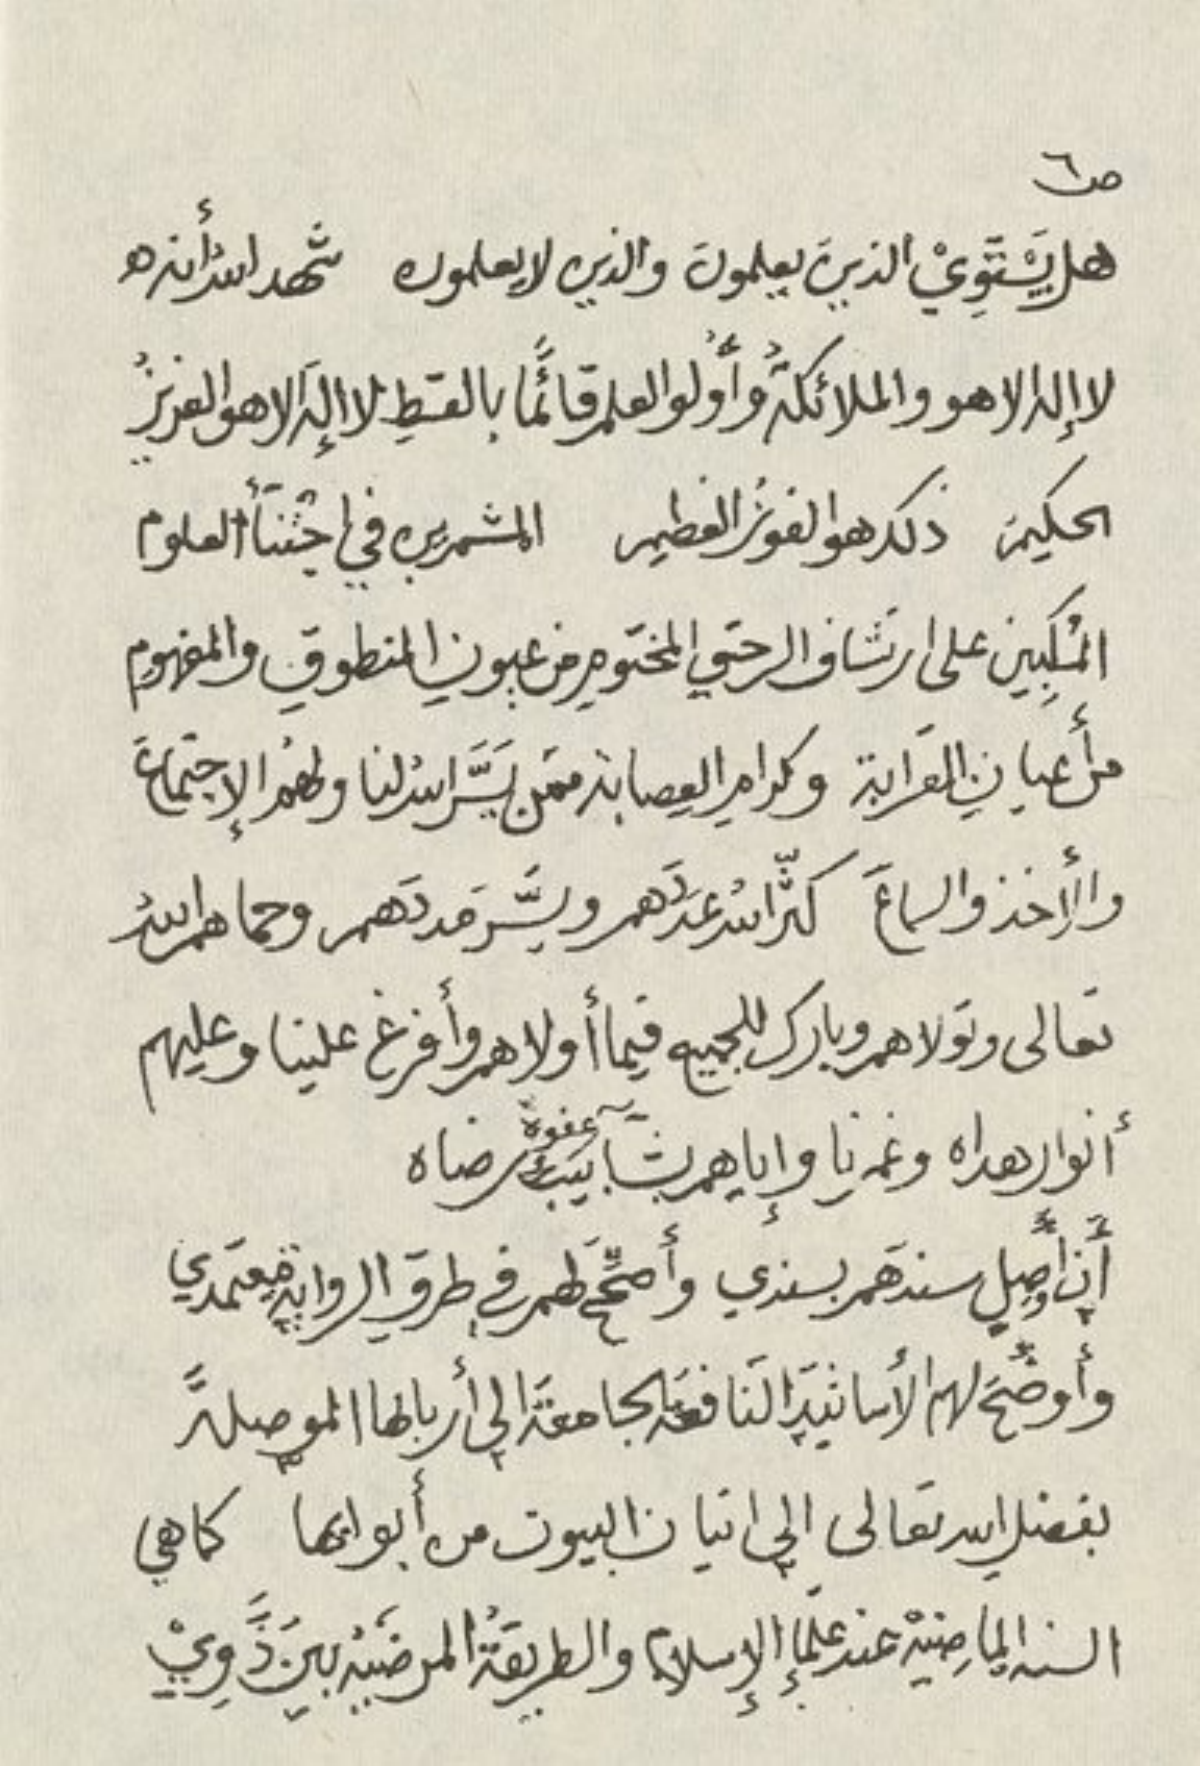 ص ٦
هل يَسْتَوِيْ الذينَ يعلمونَ والذين لا يعلمون شهد الله أنه
لا إله إلا هو والملائكةُ وأُولوا العلم قائمًا بالقسطِ لا إلهَ إلا هو العزيزُ
الحكيم ذلك هو الفوزُ العظيم المشمرين في اجتناء العلوم
المُكِبِّين على ارتشاف الرحيق المختوم من عيونِ المنطوقِ والمفهوم
من أعيانِ القرابة وكرامِ العصابة ممن يَسَّرَ الله لنا ولهُم الإجتماعَ
والأخذ والسماعَ كثَّر الله عدَدَهم ويسَّر مَددَهم وحماهم اللهُ
تعالى وتولاهم وبارك للجميع فيما أولاهم وأفرغ علينا وعليهم
أنوار هداه وغمرنا وإياهم بشآبيب عفوه رضاه
أَن أصِل سندهم بسندي وأصحِّحَ لهم في طرقِ الرواية معتمدي
وأوضِّحَ لهم الأسانيدَ النافعة الجامعة إلى أربابها الموصلةَ
بفضل الله تعالى إلى اتيان البيوت من أبوابها كما هي
السنة الماضيةْ عند علمإ الإسلام والطريقةُ المرضيّةُ بينَ ذَوِيْ